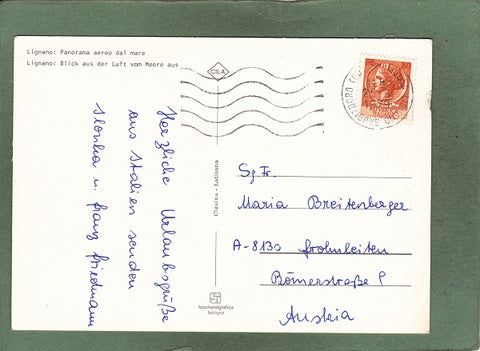 Lignano: Panorama aereo dal mare
Lignano: Blick aus der Luft vom Meere aus
CILA
Herzliche Urlaubsgrüße
aus Italien senden
Slonka u. Franz Friedmann
Clàsina - Latisana
fotometalgrafica
bologna
Sg. Fr.
Maria Breitenberger
A-8130 Frohnleiten
Römerstraße
Austria